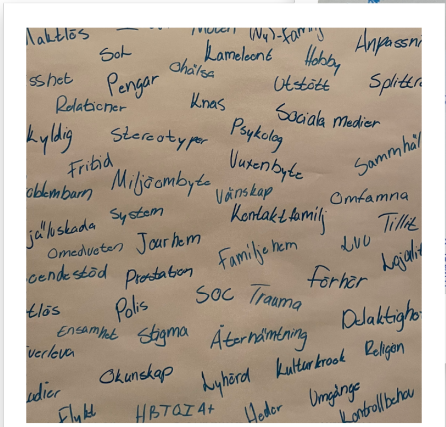 Maktlös Möten (Ny)-familj
Sol Kameleont Hobby Anpassni
sshet Pengar Ohälsa Utstött Splittra
Relationer Knas Sociala medier
kyldig Stereotyper Psykolog
Fritid Vuxenbyte Sammhäl
oblembarn Miljöombyte Vänskap Omfamna
jälvskada System Kontaktfamilj Tillit
Omedveten Jourhem Familjehem LVU Lojalit
oendestöd Prestation Förhör
tlös Polis SOC Trauma
Ensamhet Stigma Återhämtning Delaktighe
verleva Okunskap Lyhörd Kulturkrock Religion
udier Umgänge
Flykt HBTQI A+ Heder Kontrollbehov